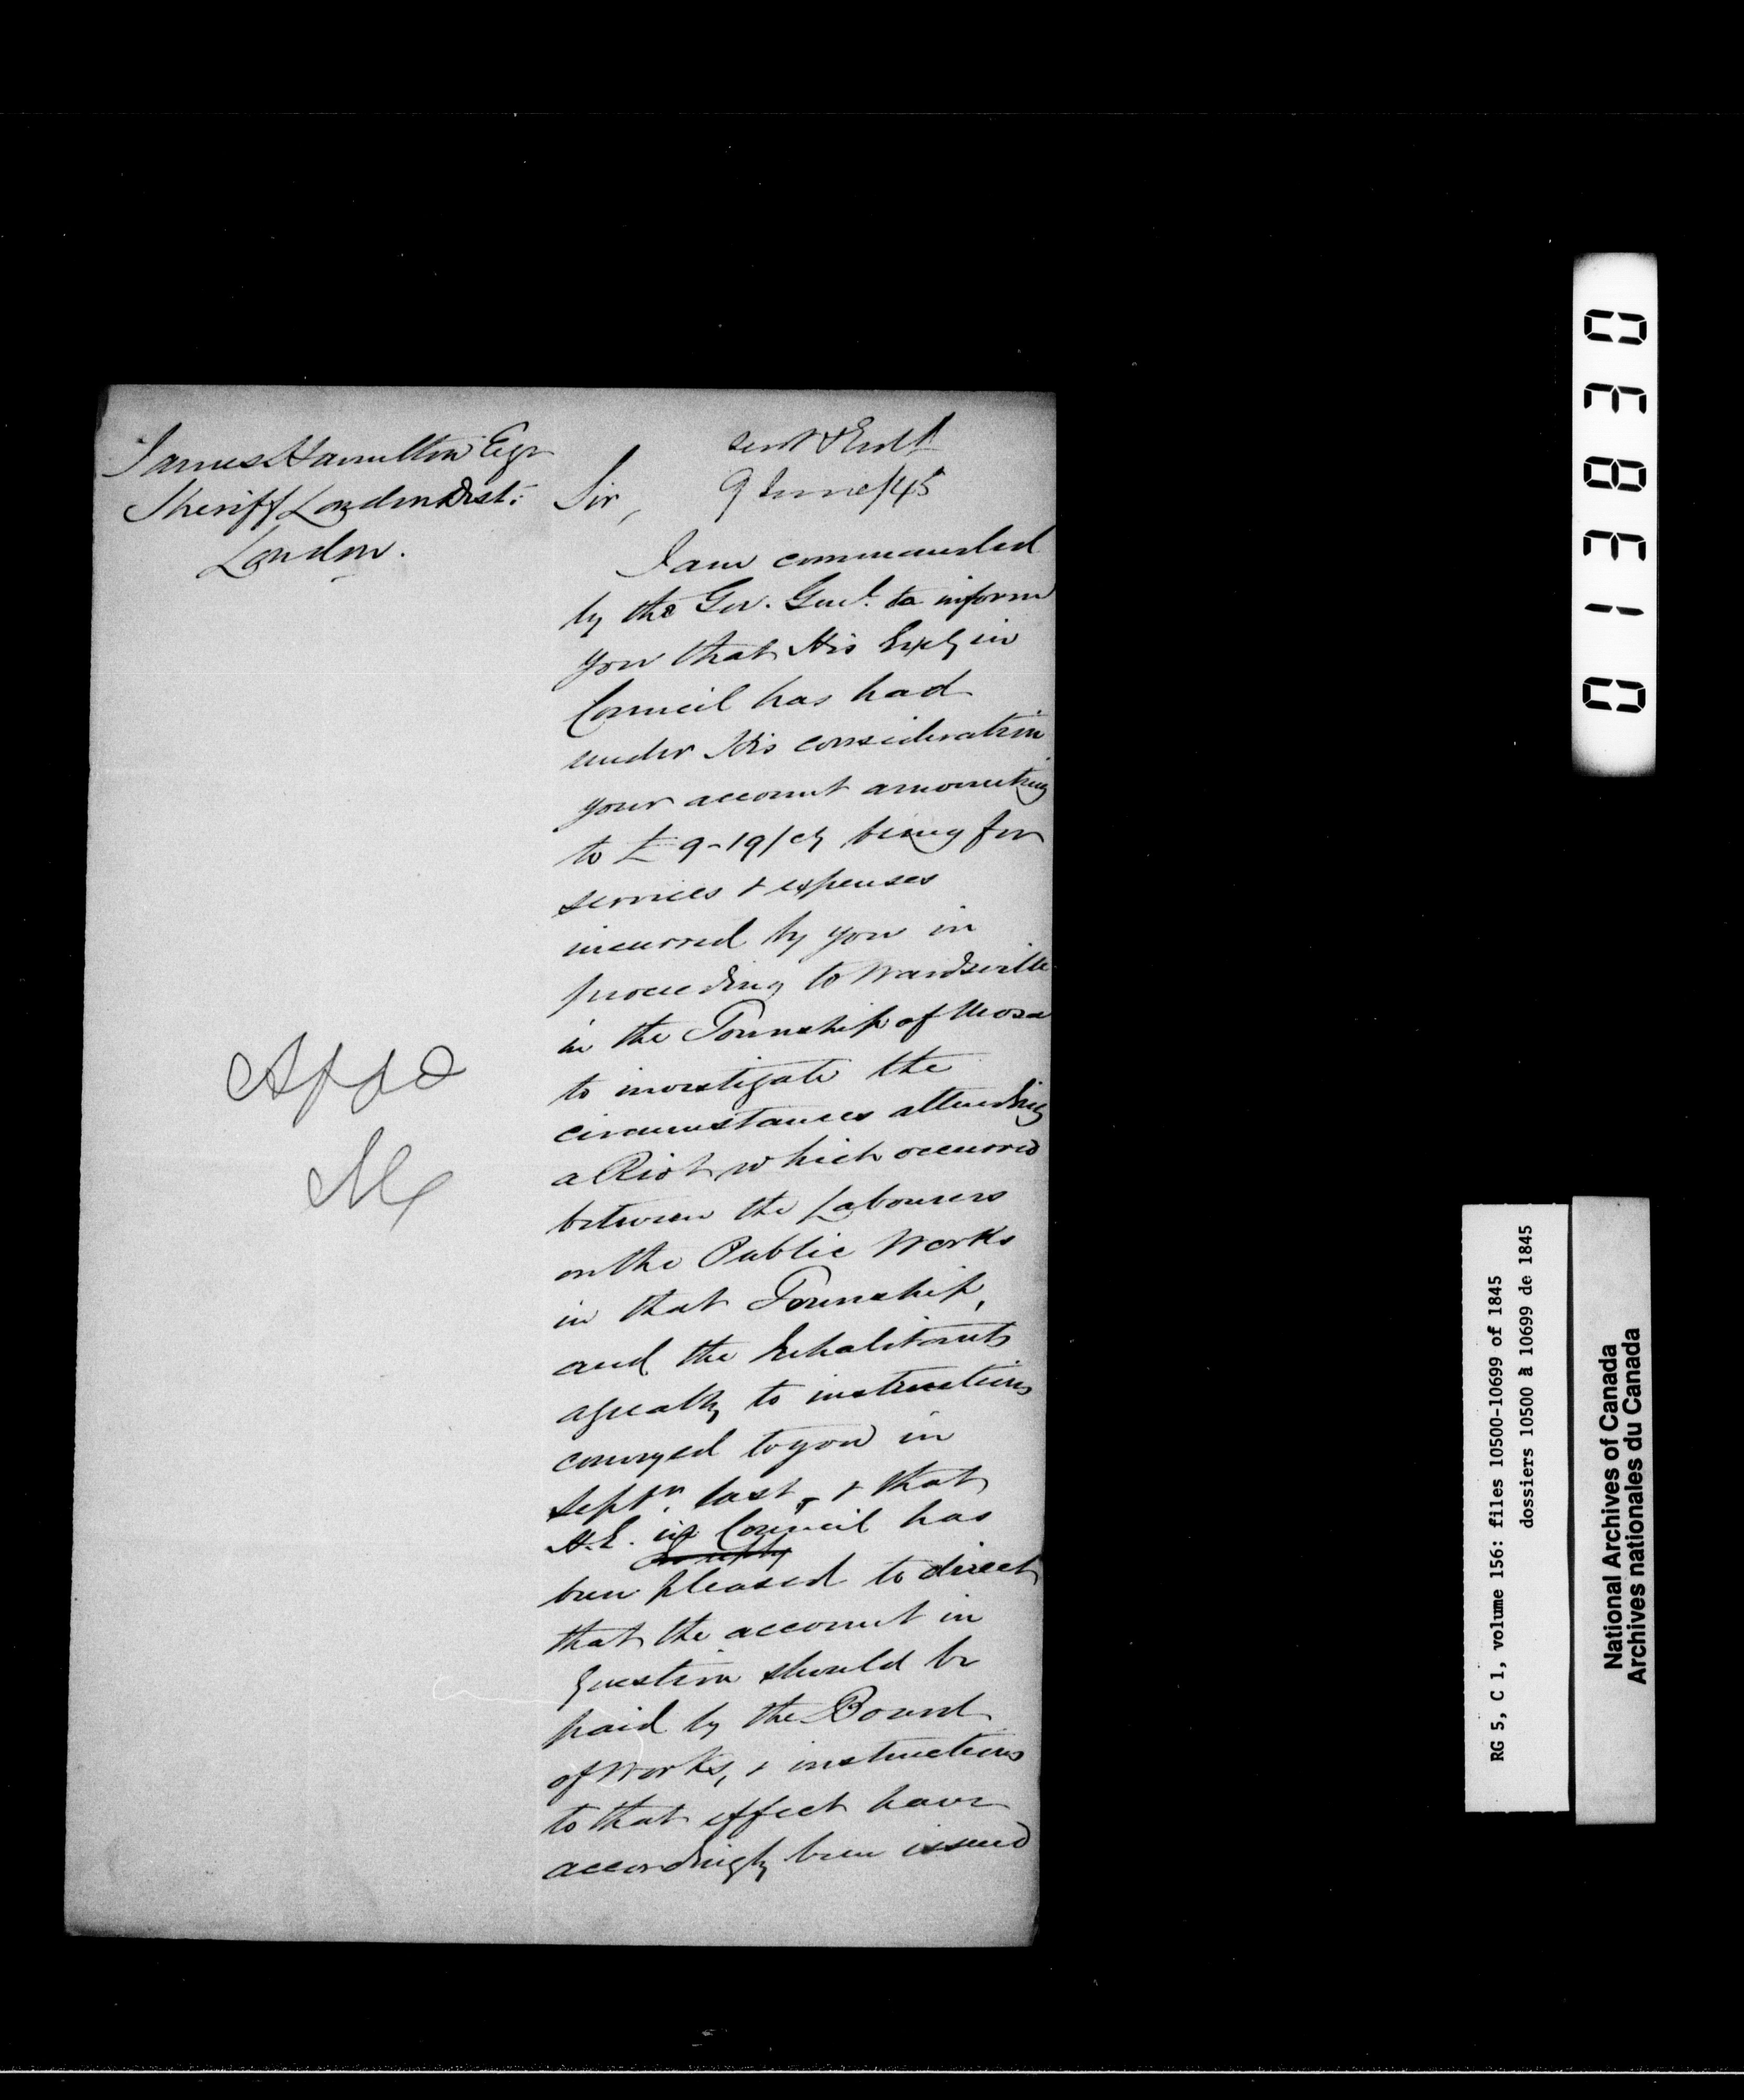 James Hamilton Esqr
Sheriff London Dist:
London.
Sent & Entd
9 June/45
Sir,
I am commanded
by the Gov. Genl. to inform
you that His Excly in
Council has had
under His consideration
your account amounting
to £9-19/cy being for
services & expenses
incurred by you in
proceeding to Wardsville
in the Township of Mosa
to investigate the
circumstances attending
a Riot which occurred
between the Labourers
on the Public Works
in that Township,
and the Inhabitants
agreably to instructions
conveyed to you in
Septr. last, & that
H.E. in Council has
been pleased to direct
that the account in
question should be
paid by the Board
of Works, & instructions
to that effect have
accordingly been issued
013830
RG 5, C 1, volume 156: files 10500-10699 of 1845
dossiers 10500 à 10699 de 1845
National Archives of Canada
Archives nationales du Canada